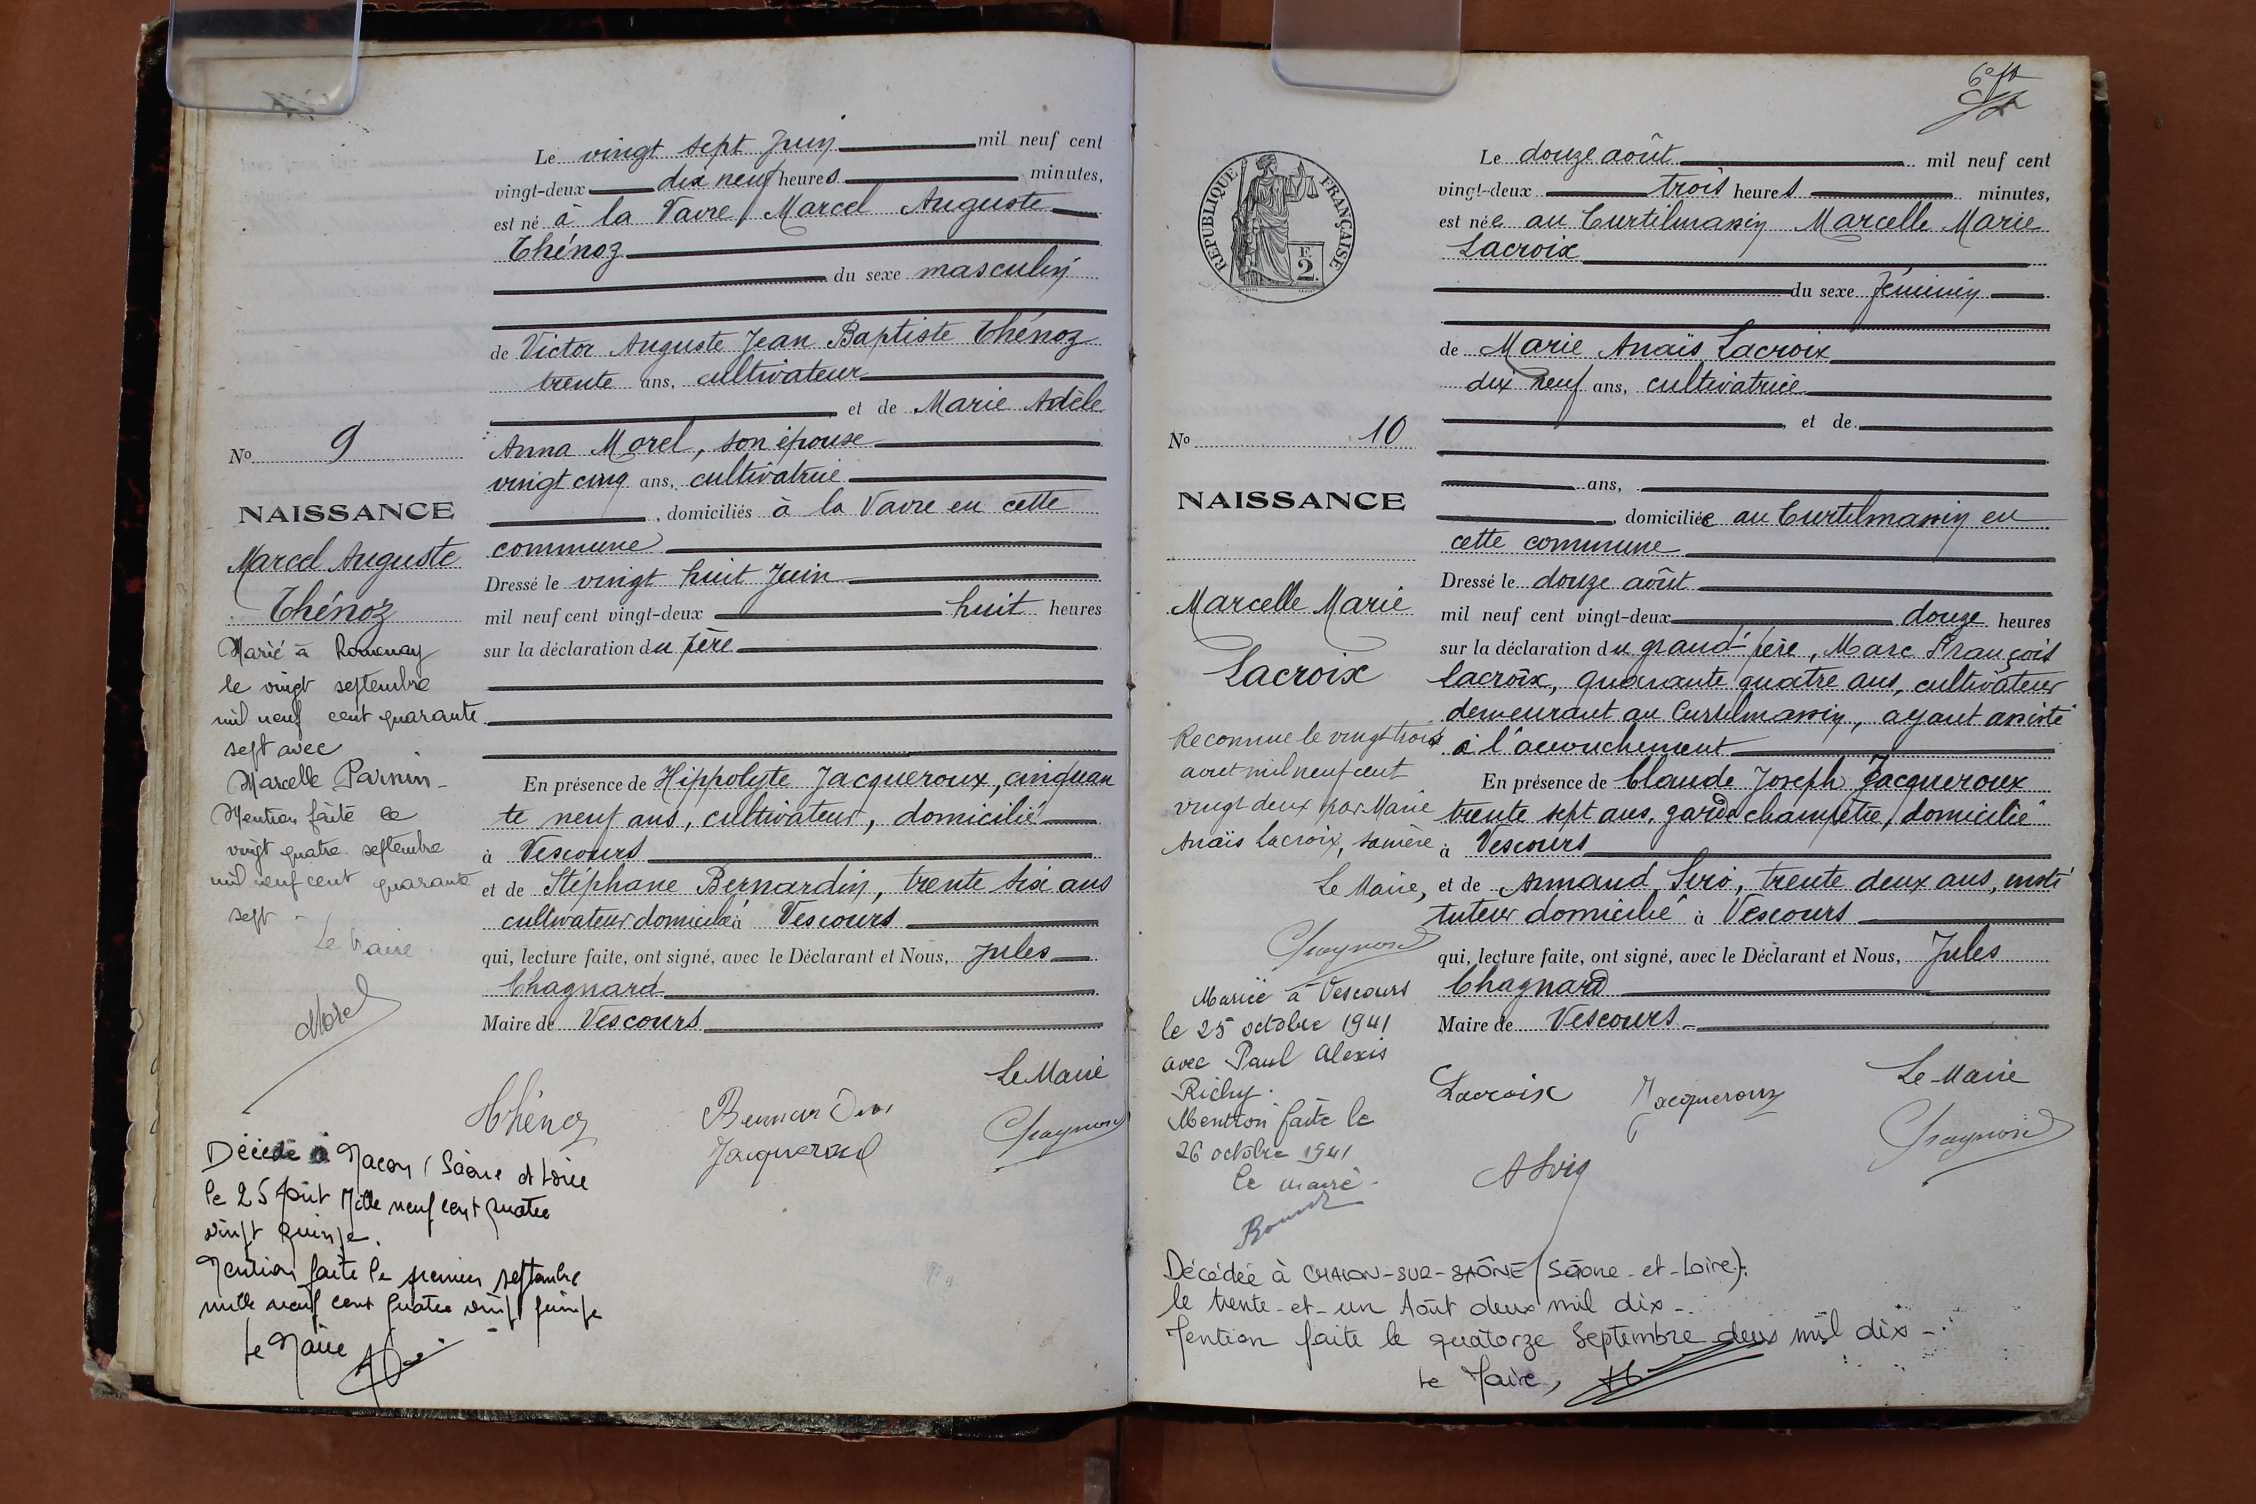 Le vingt sept Juin mil neuf cent
vingt-deux dix neuf heures minutes,
est né à la Vavre, Marcel Auguste
Thénoz
du sexe masculin
de Victor Auguste Jean Baptiste Thénoz
trente ans, cultivateur
et de Marie Adèle
Anna Morel, son épouse
vingt cinq ans, cultivatrice
, domiciliés à la Vavre en cette
commune
Dressé le vingt huit Juin
mil neuf cent vingt-deux huit heures
sur la déclaration du père
En présence de Hippolyte Jacqueroux, cinquan
te neuf ans, cultivateur, domicilié
à Vescours
et de Stéphane Bernardin, trente six ans
cultivateur domicilié à Vescours
qui, lecture faite, ont signé, avec le Déclarant et Nous, Jules
Chagnard
Maire de Vescours
Le Maire
Thénoz
Bernardin
Jacqueroux
Chagnard
No 9
NAISSANCE
Marcel Auguste
Thénoz
Marié à Romenay
le vingt septembre
mil neuf cent quarante
sept avec
Marcelle Parnin
Mention faite le
vingt quatre septembre
mil neuf cent quarante
sept
Le Maire
Morel
Décédé à Macon (Saône et Loire
le 25 Août Mille neuf cent quatre
vingt quinze.
Mention faite le premier septembre
mille neuf cent quatre vingt quinze
Le Maire
REPUBLIQUE FRANÇAISE
F.
2
Le douze août mil neuf cent
vingt-deux trois heures minutes,
est née au Curtilmassin Marcelle Marie
Lacroix
du sexe féminin
de Marie Anaïs Lacroix
dix neuf ans, cultivatrice
et de
ans,
, domiciliée au Curtilmassin en
cette commune
Dressé le douze août
mil neuf cent vingt-deux douze heures
sur la déclaration du grand-père, Marc François
Lacroix, quarante quatre ans, cultivateur
demeurant au Curtilmassin, ayant assisté
à l'accouchement
En présence de Claude Joseph Jacqueroux
trente sept ans, garde champêtre, domicilié
à Vescours
et de Armand, trente deux ans, insti
tuteur domicilié à Vescours
qui, lecture faite, ont signé, avec le Déclarant et Nous, Jules
Chagnard
Maire de Vescours
Le Maire
Lacroix
Jacqueroux
Chagnard
No 10
NAISSANCE
Marcelle Marie
Lacroix
Reconnue le vingt trois
aout mil neuf cent
vingt deux par Marie
Anaïs Lacroix, sa mère
Le Maire,
Chagnard
Mariée à Vescours
le 25 octobre 1941
avec Paul Alexis
Richy.
Mention faite le
26 octobre 1941
Le maire
Décédée à CHALON-SUR-SAÔNE (Saône-et-Loire)
le trente-et-un Août deux mil dix
Mention faite le quatorze Septembre deux mil dix
Le Maire,